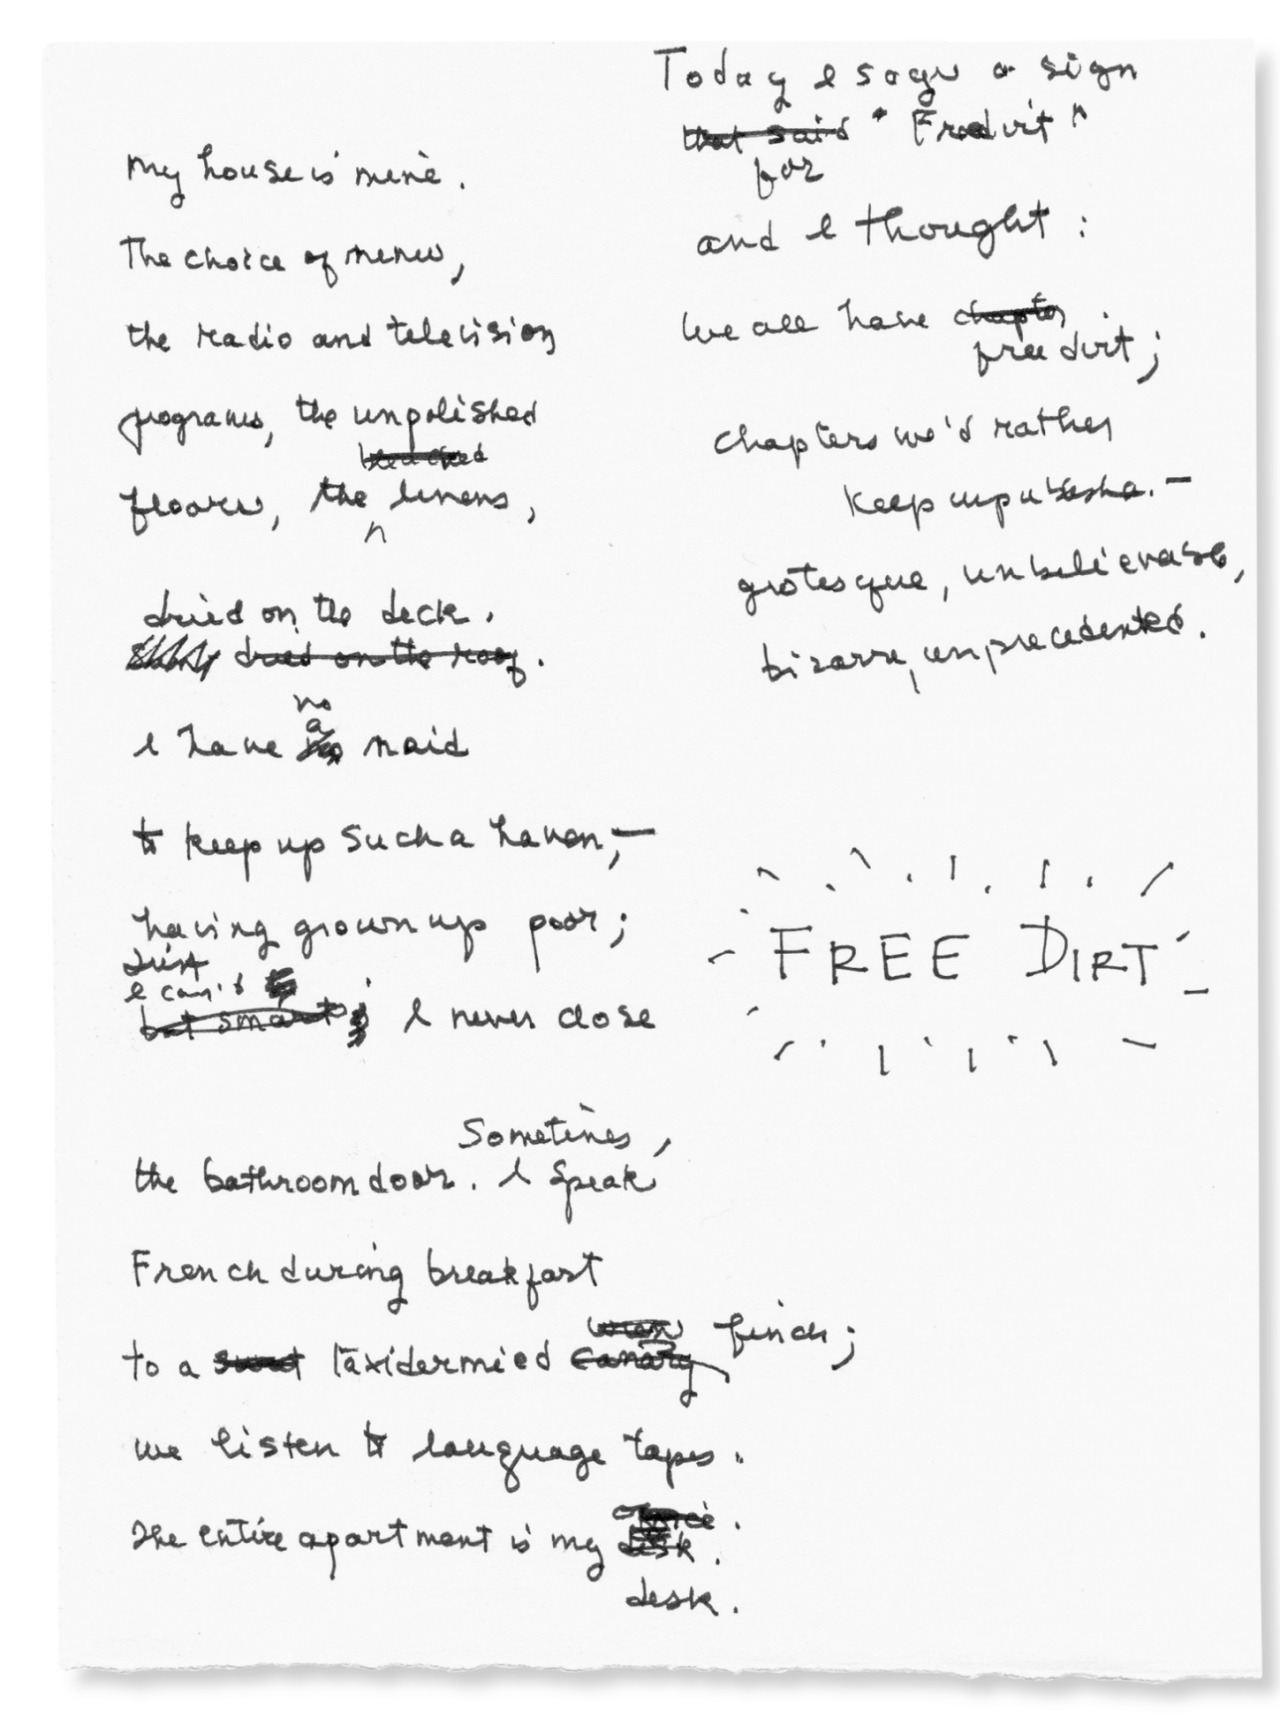 My house is mine.
The choice of menu,
the radio and television
programs, the unpolished
bleached
floors, the linens,
dried on the deck.
dried on the roof.
no
a
I have maid
to keep up such a haven,—
having grown up poor;
I can't
but smart; I never close
Sometimes,
the bathroom door. I speak
French during breakfast
wren finch;
to a taxidermied canary
we listen to language tapes.
The entire apartment is my desk.
desk.
Today I saw a sign
that said "Free dirt"
for
and I thought:
We all have chapters
free dirt;
chapters we'd rather
keep unpublished.—
grotesque, unbelievable,
bizarre, unprecedented.
FREE DIRT